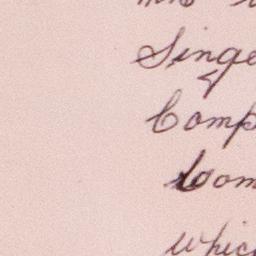 Singe
Comp
Coom
whic